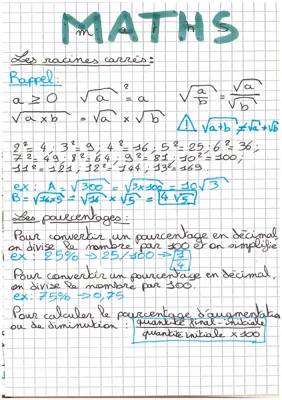 MATHS
Les racines carrés :
Rappel :
a ≥ 0   √a² = a   √(a/b) = √a/√b
√(a x b) = √a x √b   ⚠ √(a+b) ≠ √a + √b
2² = 4 ; 3² = 9 ; 4² = 16 ; 5² = 25 ; 6² = 36 ;
7² = 49 ; 8² = 64 ; 9² = 81 ; 10² = 100 ;
11² = 121 ; 12² = 144 ; 13² = 169
ex : A = √300 = √(3x100) = 10√3
B = √(16x5) = √16 x √5 = 4√5
Les pourcentages :
Pour convertir un pourcentage en décimal
on divise le nombre par 100 et on simplifie
ex : 25% → 25/100 → 1/4
Pour convertir un pourcentage en décimal,
on divise le nombre par 100.
ex : 75% → 0,75
Pour calculer le pourcentage d'augmentation
ou de diminution : quantité final - initiale
quantité initiale x 100